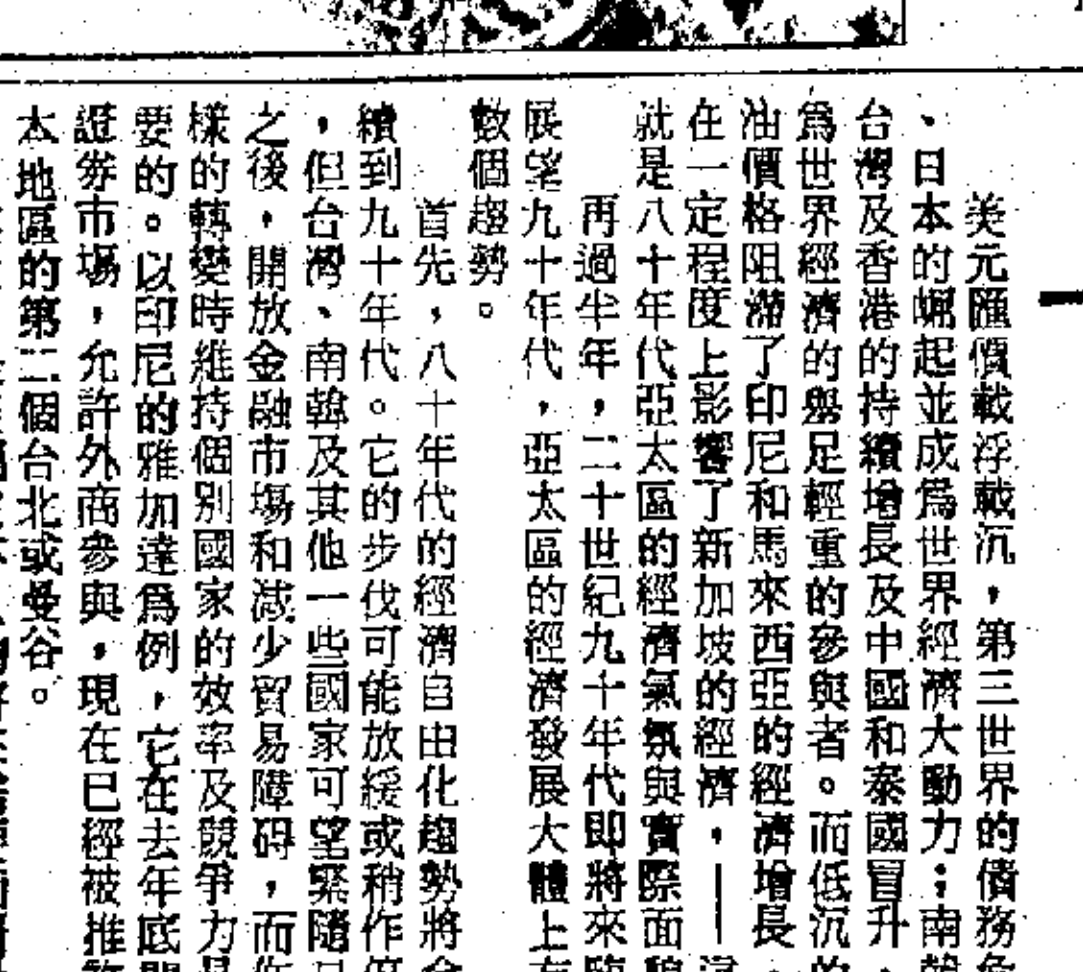 美元匯價載浮載沉，第三世界的債務
、日本的崛起並成爲世界經濟大動力；南韓
台灣及香港的持續增長及中國和泰國冒升，
爲世界經濟的舉足輕重的參與者。而低沉的
油價格阻滯了印尼和馬來西亞的經濟增長，
在一定程度上影響了新加坡的經濟，——這
就是八十年代亞太區的經濟氣氛與實際面貌
再過半年，二十世紀九十年代即將來臨
展望九十年代，亞太區的經濟發展大體上有
數個趨勢。
首先，八十年代的經濟自由化趨勢將會
續到九十年代。它的步伐可能放緩或稍作
，但台灣、南韓及其他一些國家可望緊隨
之後，開放金融市場和減少貿易障碍，而作
樣的轉變時維持個別國家的效率及競爭力是
要的。以印尼的雅加達爲例，它在去年底開
證券市場，允許外商參與，現在已經被推
太地區的第二個台北或曼谷。